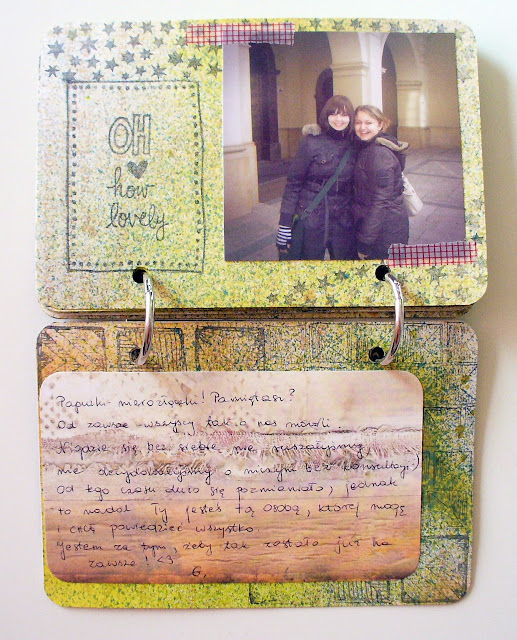 OH
how
lovely
Papużki nierozłączki! Pamiętasz?
Od zawsze wszyscy tak o nas mówili.
Nigdzie się bez siebie nie ruszałyśmy,
nie decydowałyśmy o niczym bez konsultacji:)
Od tego czasu dużo się pozmieniało, jednak
to nadal Ty jesteś tą osobą, której mogę
i chcę powiedzieć wszystko.
Jestem za tym, żeby tak zostało już na
zawsze! <3
G.